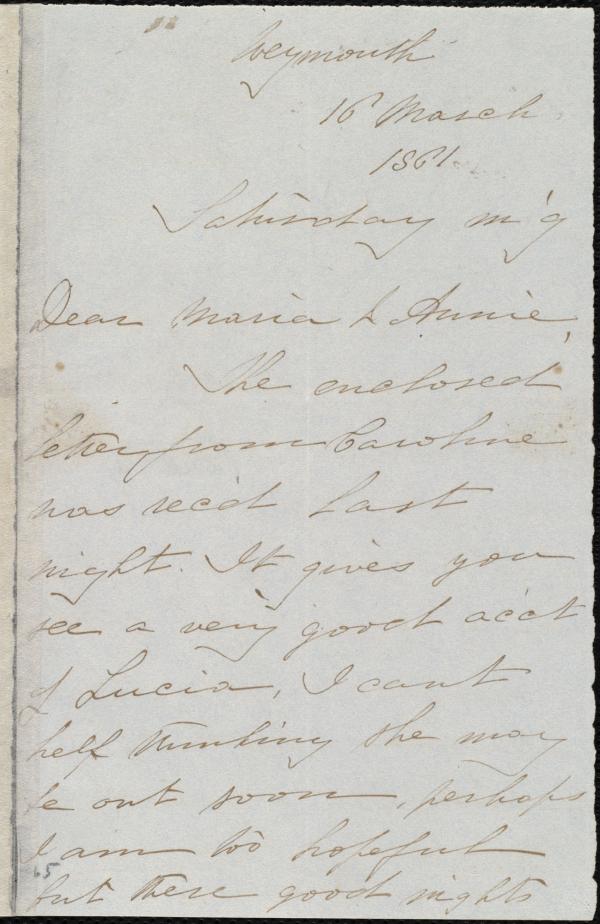 Weymouth
16 March
1861.
Saturday m'g
Dear Maria & Annie,
The enclosed
letter from Caroline
was rec'd last
night. It gives you
see a very good acc't
of Lucia, I cant
help thinking she may
be out soon, perhaps
I am too hopeful
but these good nights